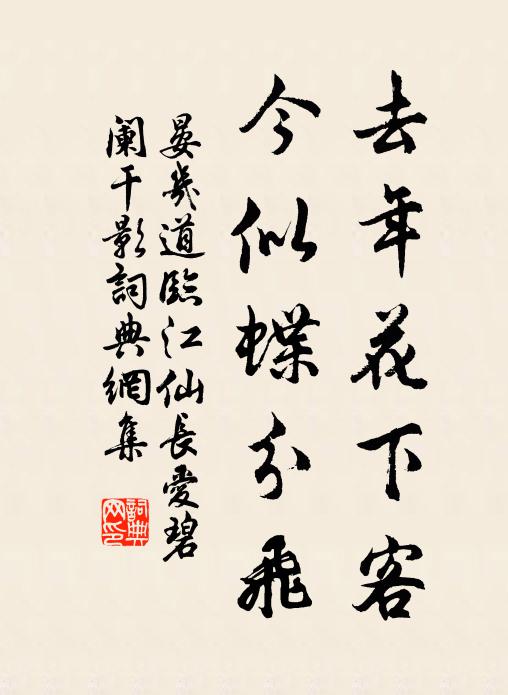 去年花下客
今似蝶分飛
晏幾道臨江仙長愛碧
闌干影詞典網集
詞典
网印